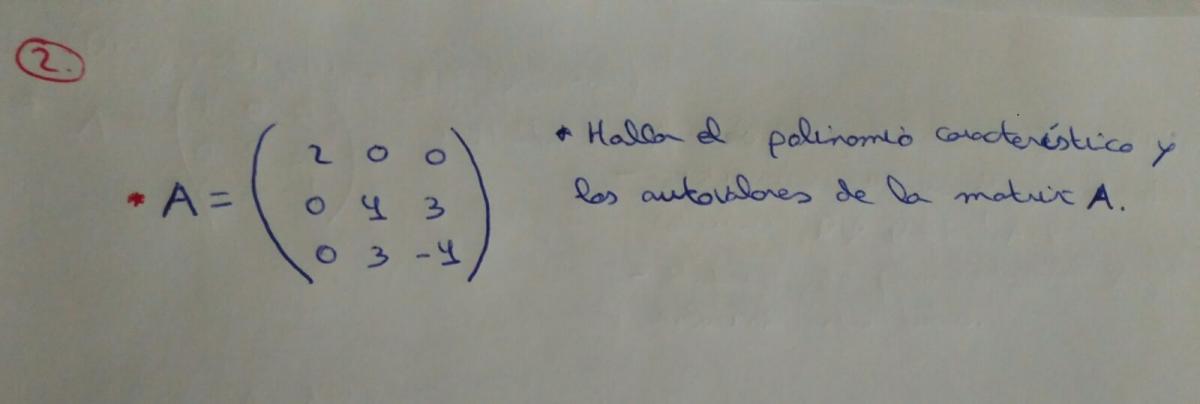 2.
* A = ( 2 0 0
0 4 3
0 3 -4 )
* Halla el polinomio característico y
los autovalores de la matriz A.